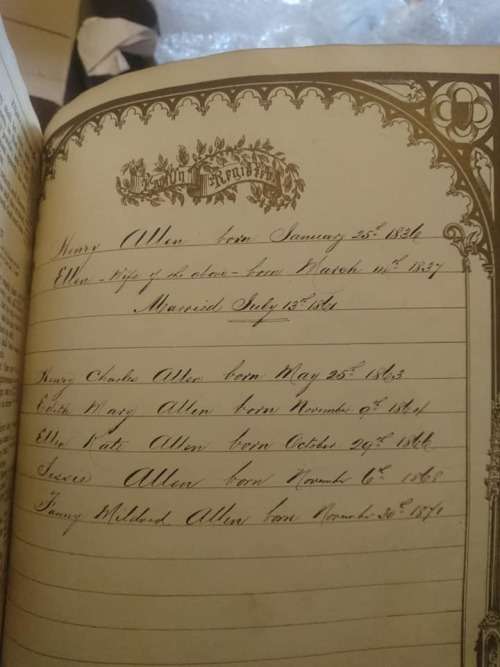 Family Register
Henry Allen born January 25th 1836
Ellen - Wife of the above - born March 14th 1837
Married July 13th 1861
Henry Charles Allen born May 25th 1863
Edith Mary Allen born November 9th 1864
Ellen Kate Allen born October 29th 1866
Allen born November 6th 1868
Fanny Mildred Allen born November 30th 1871